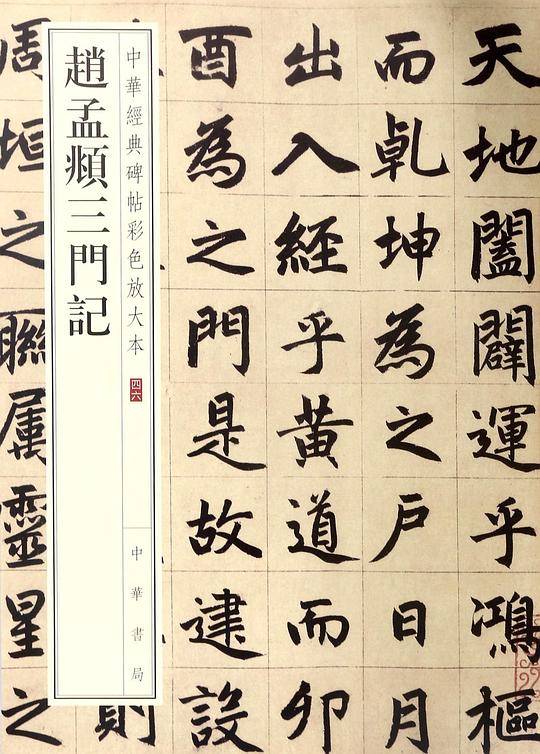 天地闔闢運乎鴻樞
而乹坤為之戶日月
出入經乎黄道而卯
酉為之門是故建設
則
周垣之聯屬靈星之
中華經典碑帖彩色放大本
四六
中華書局
趙孟頫三門記